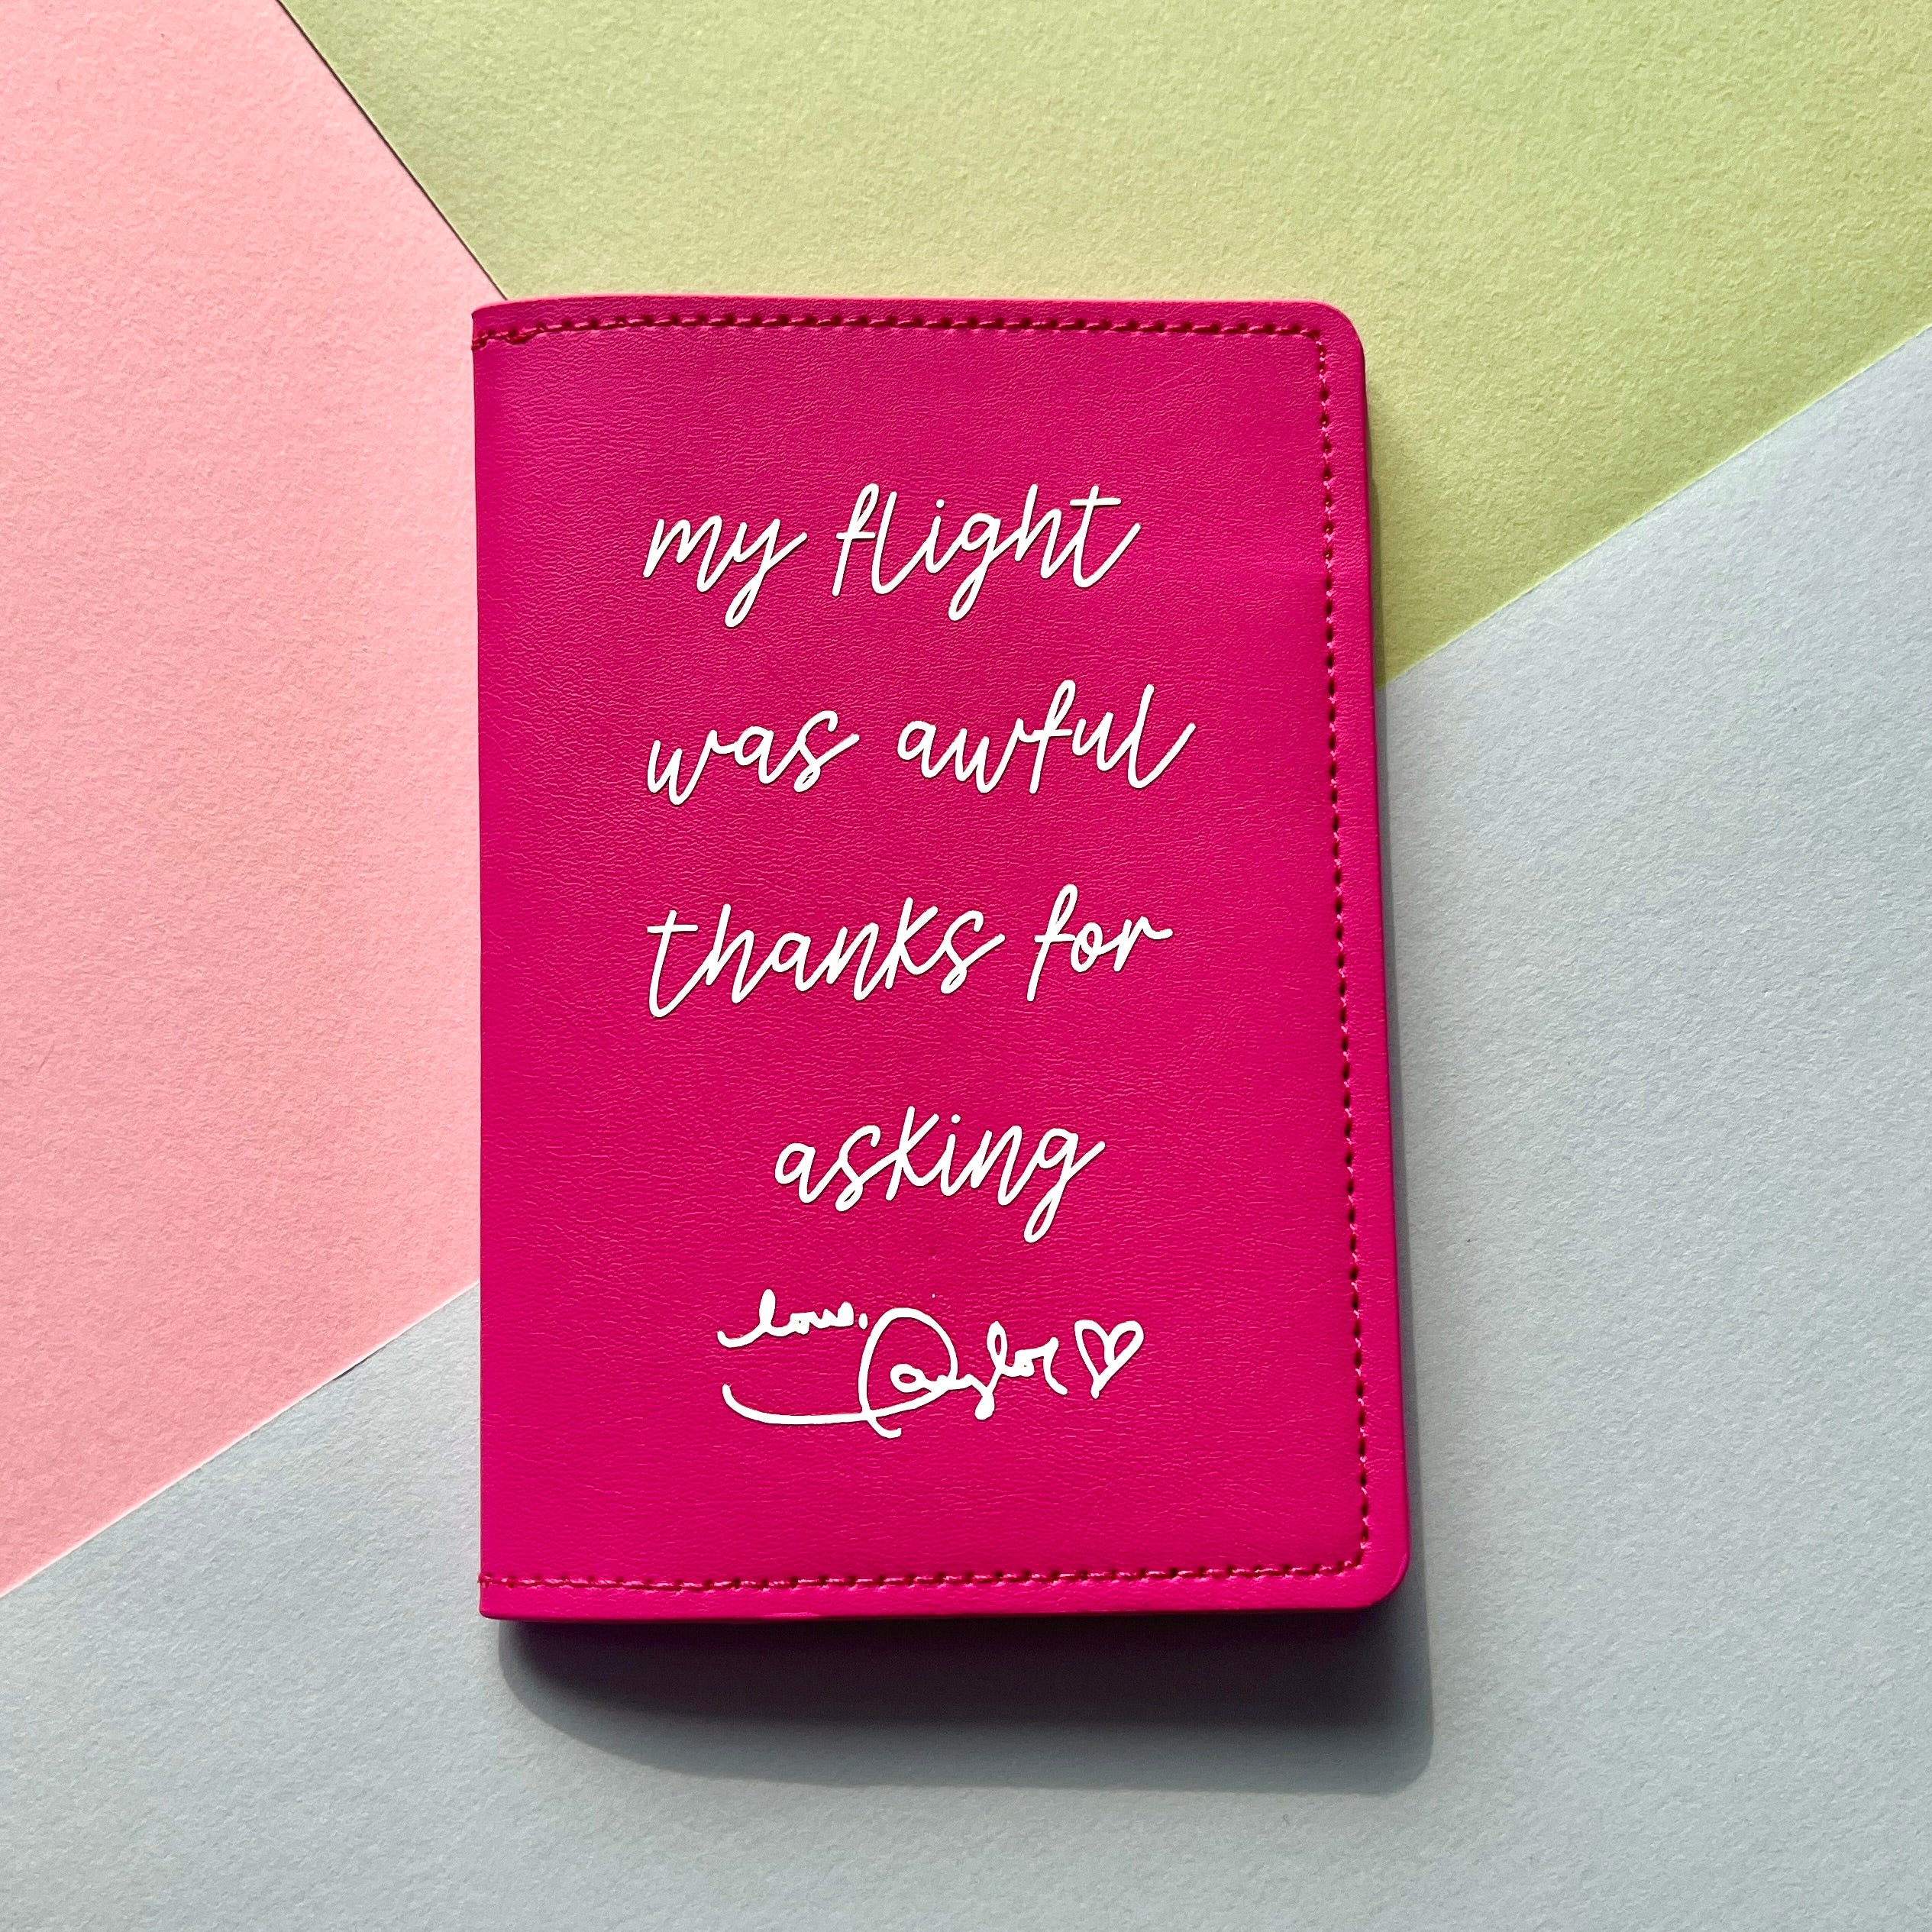 my flight
was awful
thanks for
asking
love,
Taylor